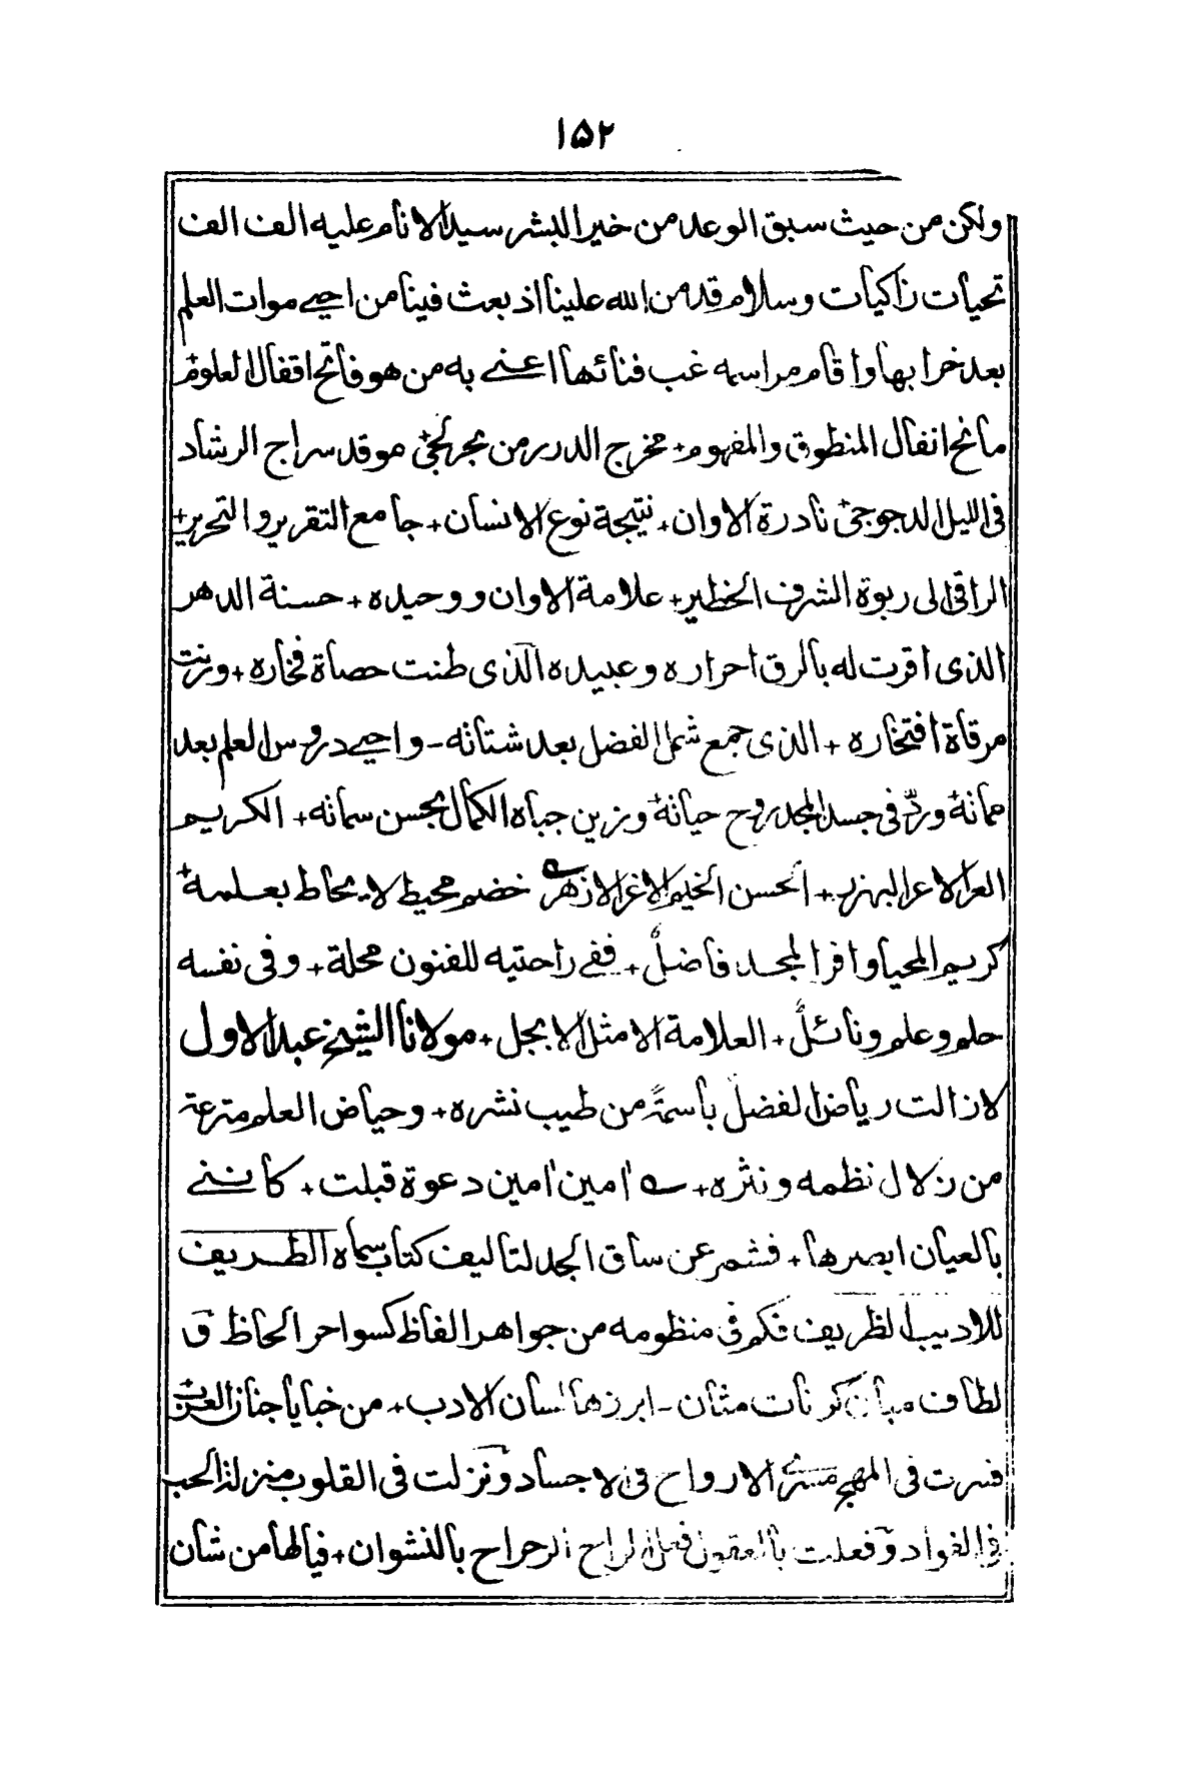 ١٥٢
ولكن من حيث سبق الوعد من خير البشر سيد الانام عليه الف الف
تحيات زاكيات وسلام قد من الله علينا اذ بعث فينا من احيى موات العلم
بعد خرابها واقام مراسمه غب فنائها اعنى به من هو فاتح اقفال العلوم +
مانح انفال المنطوق والمفهوم + مخرج الدرر من بحر لجى + موقد سراج الرشاد
فى الليل الدجوجى + نادرة الاوان + نتيجة نوع الانسان + جامع التقرير والتحرير +
الراقى الى ربوة الشرف الخطير + علامة الاوان ووحيده + حسنة الدهر
الذى اقرت له بالرق احراره وعبيده الذى طنت حصاة فخاره + وزنت
مرقاة افتخاره + الذى جمع شمل الفضل بعد شتاته - واحيى دروس العلم بعد
مماته + وردّ فى جسد المجد روح حياته + وزين جباه الكمال بحسن سماته + الكريم
الحسن الخيم الاغر الازهر خضم محيط لا يحاط بعلمه +
كريم المحيا وافر المجد فاضلٌ + ففى راحتيه للفنون محلة + وفى نفسه
حلم وعلم ونائلٌ + العلامة الامثل الابجل + مولانا الشيخ عبد الاول
لازالت رياض الفضل باسمةً من طيب نشره + وحياض العلم مترعة
من زلال نظمه ونثره + امين امين دعوة قبلت + كاننى
بالعيان ابصرها + فشمر عن ساق الجد لتاليف كتاب سماه الطريف
للاديب الظريف فكم فى منظومه من جواهر الفاظ كسواحر الحاظ و
لطاف مبان كرنات مثان - ابرزها لسان الادب + من خبايا جنان العرب +
فسرت فى المهج مسرى الارواح فى الاجساد ونزلت فى القلوب منزلة الحب
فى الفواد وفعلت بالعقول فعل الراح الرحراح بالنشوان + فيالها من شان